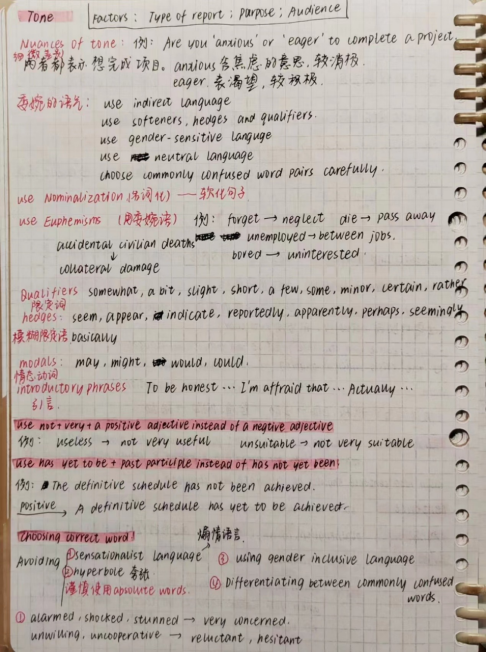 Tone
Factors: Type of report; purpose; Audience
Nuances of tone: 例: Are you 'anxious' or 'eager' to complete a project
细微差别
两者都表示想完成项目。anxious含焦虑的意思,较消极
eager 表渴望,较积极.
委婉的语气: use indirect language
use softeners, hedges and qualifiers.
use gender-sensitive languge
use neutral language
choose commonly confused word pairs carefully.
use Nominalization (名词化) —— 软化句子
use Euphemisms (用委婉语) 例: forget → neglect die → pass away
accidental civilian deaths unemployed → between jobs.
↓ bored → uninterested.
collateral damage
Qualifiers somewhat, a bit, slight, short, a few, some, minor, certain, rather
限定词
hedges: seem, appear, indicate, reportedly, apparently, perhaps, seemingly
模糊限定语 basically
modals: may, might, would, could.
情态动词
introductory phrases To be honest ... I'm afraid that ... Actually ...
引言.
use not + very + a positive adjective instead of a negtive adjective
例: useless → not very useful unsuitable → not very suitable
use has yet to be + past participle instead of has not yet been:
例: The definitive schedule has not been achieved.
positive → A definitive schedule has yet to be achieved.
Choosing correct word: 煽情语言
Avoiding ① sensationalist language ③ using gender inclusive language
② hyperbole 夸张
谨慎使用absolute words. ④ Differentiating between commonly confused
words.
① alarmed, shocked, stunned → very concerned.
unwilling, uncooperative → reluctant, hesitant